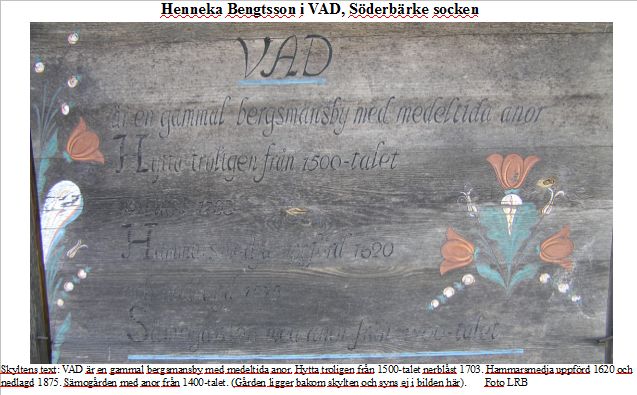 Henneka Bengtsson i VAD, Söderbärke socken
VAD
är en gammal bergsmansby med medeltida anor
Hytta troligen från 1500-talet
Hammarsmedja uppförd 1620
Sämogården med anor från 1400-talet
Skyltens text: VAD är en gammal bergsmansby med medeltida anor. Hytta troligen från 1500-talet nerblåst 1703. Hammarsmedja uppförd 1620 och
nedlagd 1875. Sämogården med anor från 1400-talet. (Gården ligger bakom skylten och syns ej i bilden här). Foto LRB